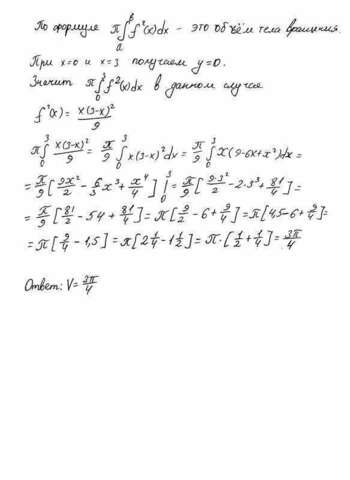 По формуле π∫ₐᵇ f²(x)dx – это объём тела вращения.
При x=0 и x=3 получаем y=0.
Значит π∫₀³ f²(x)dx в данном случае
f²(x) = x(3-x)²/9
π∫₀³ x(3-x)²/9 = π/9 ∫₀³ x(3-x)²dx = π/9 ∫₀³ x(9-6x+x²)dx =
= π/9 [9x²/2 - 6/3 x³ + x⁴/4] |₀³ = π/9 [9·3²/2 - 2·3³ + 81/4] =
= π/9 [81/2 - 54 + 81/4] = π[9/2 - 6 + 9/4] = π[4,5 - 6 + 9/4] =
= π[9/4 - 1,5] = π[2 1/4 - 1 1/2] = π·[1/2 + 1/4] = 3π/4
Ответ: V = 3π/4